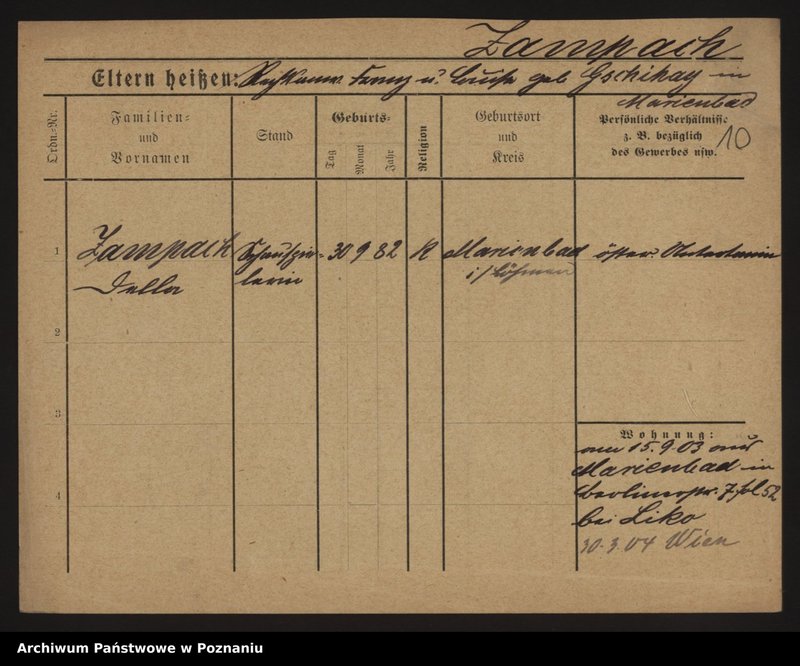 Zampach
Eltern heißen: Franz u. Luise geb Gschihay in
Marienbad
Ordn.-Nr.
Familien-
und
Vornamen
Stand
Geburts-
Tag
Monat
Jahr
Religion
Geburtsort
und
Kreis
Persönliche Verhältnisse
z. B. bezüglich
des Gewerbes usw.
10
1
Zampach Schauspie- 30 9 82 K Marienbad öster.
Della lerin i/Böhmen
2
3
4
Wohnung:
am 15.9.03 aus
Marienbad in
Berlinerstr. 7 fol 52
bei Liko
30.3.04 Wien
Archiwum Państwowe w Poznaniu